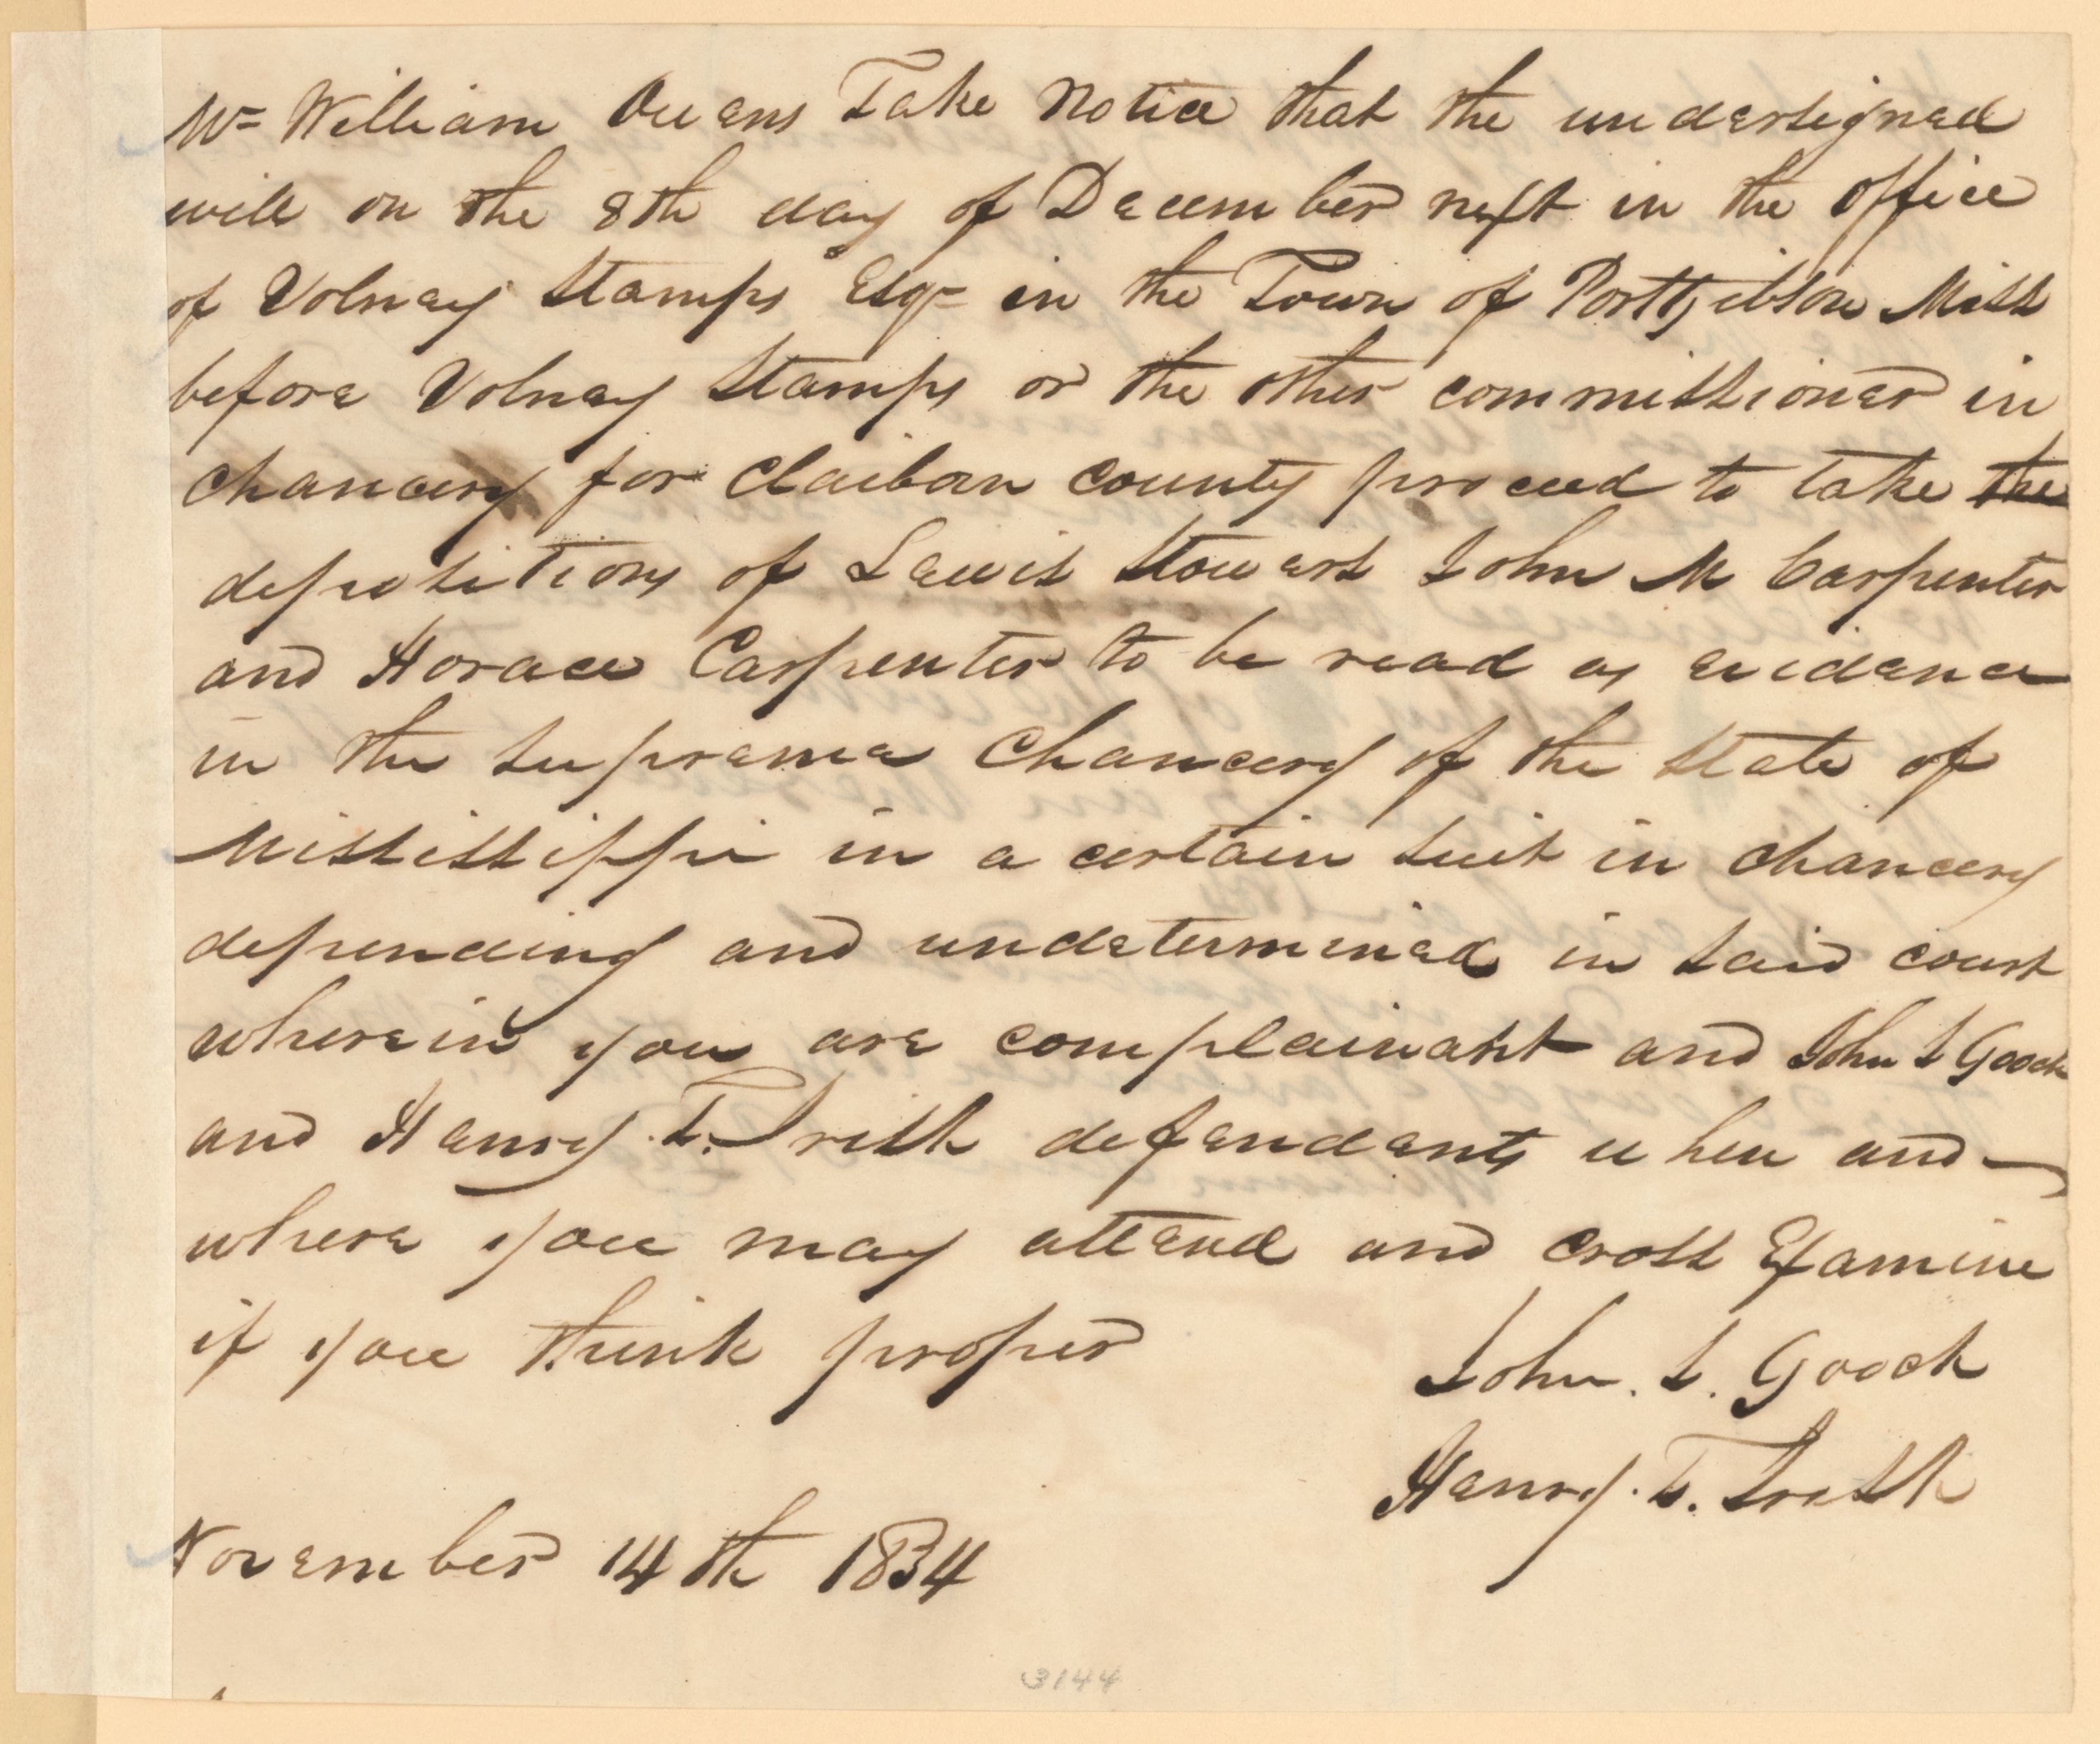 Mr William Owens Take Notice that the undersigned
will on the 8th day of December next in the office
of Volney Stamps Esqr in the Town of Port Gibson Miss
before Volney Stamps or the other commissioner in
chancery for Claiborn county proceed to take the
depositions of Lewis Stowers John M Carpenter
and Horace Carpenter to be read as evidence
in the Supreme Chancery of the State of
Mississippi in a certain suit in chancery
depending and undetermined in said court
wherein you are complainant and John S Gooch
and Henry T. Irish defendants when and
where you may attend and cross Examine
if you think proper
John. S. Gooch
Henry. T. Irish
November 14th 1834
3144